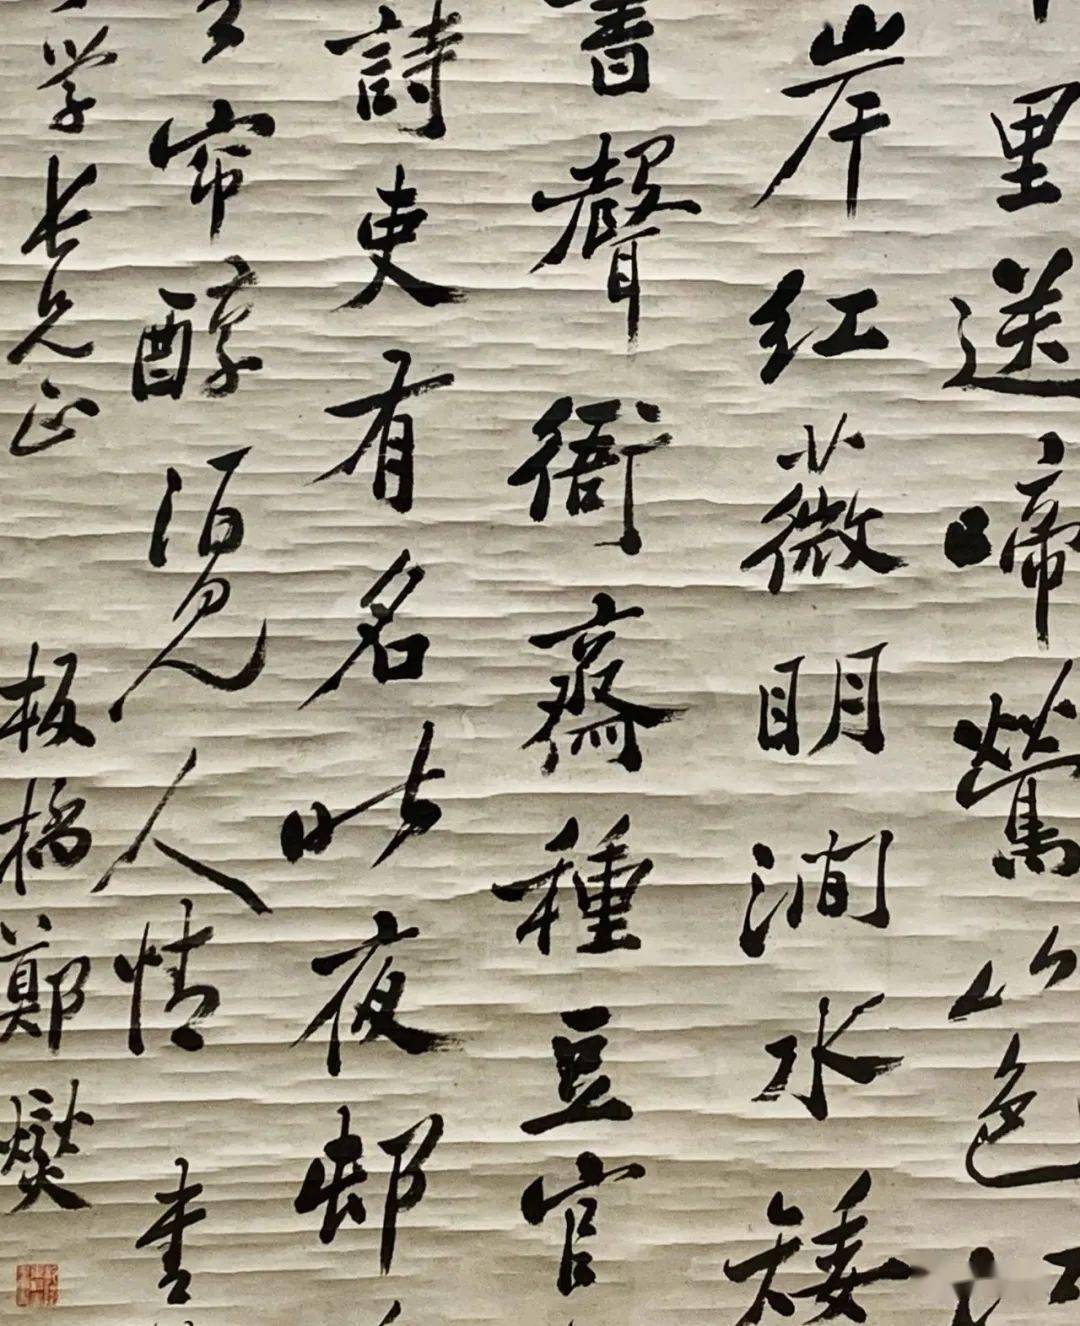 里送啼鶯山色江
岸红薇明澗水矮
書聲衙齋種豆官
詩吏有名昨夜邨
帘醇須見人情書
学长兄正
板橋鄭燮